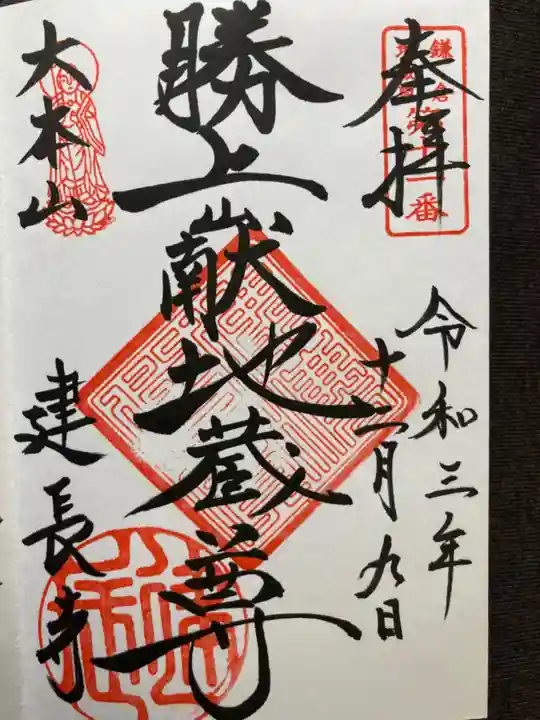 奉拝
鎌倉
十一番
令和三年
十二月九日
勝上献地蔵尊
大本山
建長寺